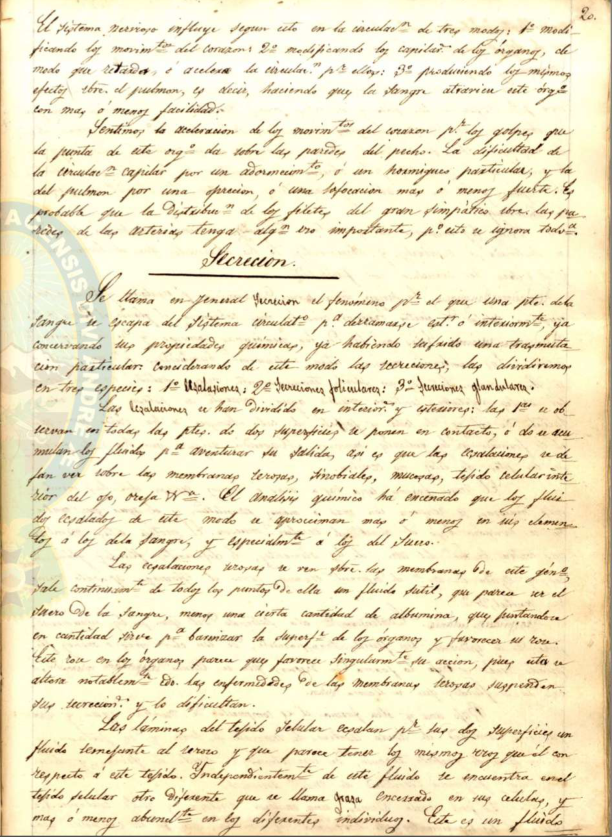 20.
El sistema nervioso influye segun esto en la circulacn. de tres modos: 1º modi-
ficando los movimtos. del corazon: 2º modificando los capilars. de los organos, de
modo que retarda, ó acelera la circularn. pr. ellos: 3º produciendo los mismos
efectos sbre. el pulmon, es decir, haciendo que la sangre atraviese este órgo.
con mas ó menos facilidad.
Sentimos la aceleracion de los movimtos. del corazon pr. los golpes que
la punta de este orgo. da sobre las paredes del pecho. La dificultad de
la circulacn. capilar por un adormecimto., ó un hormigueo particular, y la
del pulmon por una opresion, ó una sofocacion mas ó menos fuerte. Es
probable que la distribun. de los filetes del gran simpático sbre. las pa-
redes de las arterias tenga algn. uso importante, po. esto se ignora todva.
Secrecion.
Se llama en general secrecion el fenómeno pr. el que una pte. dela
sangre se escapa del sistema circulato. pa. derramarse estr. ó interiormte., ya
conservando sus propiedades quimicas, ya habiendo sufrido una trasmuta-
cion particular: considerando de este modo las secreciones, las dividiremos
en tres especies: 1º Ecsalasiones: 2º Secreciones foliculares: 3º Secreciones glandulares.
Las ecsalaciones se han dividido en interiors. y esteriores: las 1as se ob-
servan en todas las ptes. do dos superficies se ponen en contacto, ó do se acu-
mulan los fluidos pa. aventurar su salida, asi es que las ecsalaciones se de-
jan ver sobre las membranas serosas, sinobiales, mucosas, tejido celular inte-
rior del ojo, oreja &a. El analisis quimico há enseñado que los flui-
dos ecsalados de este modo se aprocsiman mas ó menos en sus elemen-
tos á los dela sangre, y especialmte. á los del suero.
Las ecsalaciones serosas se ven sbre. las membranas de este géno.,
sale continuamte. de todos los puntos de ella un fluido sutil, que parece ser el
suero de la sangre, menos una cierta cantidad de albumina, que juntandose
en cantidad sirve pa. barnizar la superfe. de los órganos y favorecer su roce.
Este roce en los órganos parece que favorece singularmte. su accion, pues esta se
altera notablemte. cdo. las enfermedades de las membranas serosas suspenden
sus secrecions. y lo dificultan.
Las láminas del tejido selular ecsalan pr. sus dos superficies un
fluido semejante al seroso y que parece tener los mismos usos que él con
respecto á este tejido. Independientemte. de este fluido se encuentra en el
tejido selular otro diferente que se llama grasa encerrado en sus celulas, y
mas ó menos abundte. en los diferentes individuos. Este es un fluido